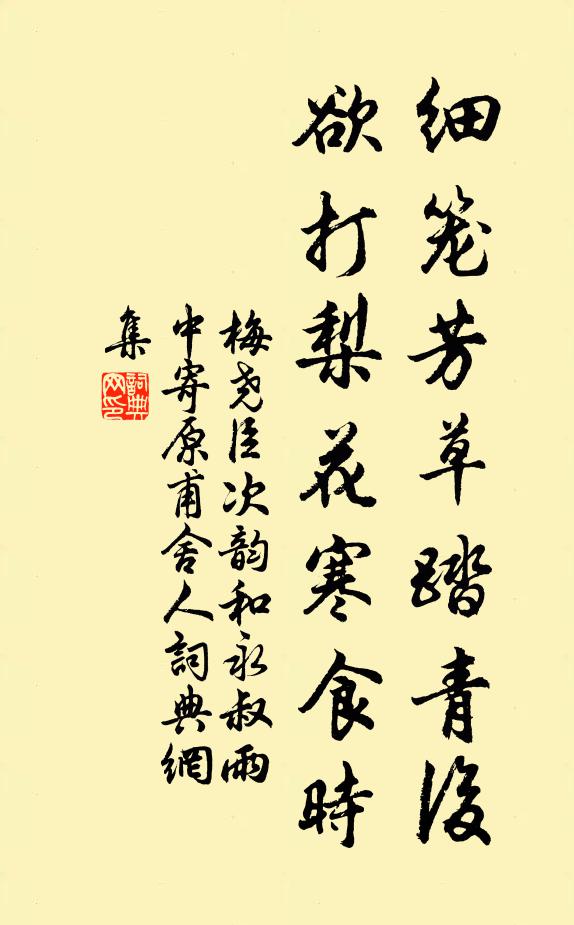 细笼芳草踏青後
欲打梨花寒食時
梅尧臣次韵和永叔雨
中寄原甫舍人詞典網
集
詞典
网印